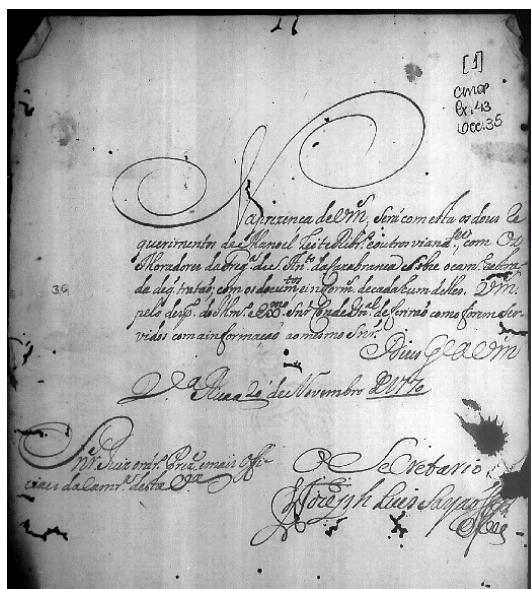 [1]
CMOP
Cx. 43
Doc. 35
Na prizenca de Vm. será com esta os dous Re
querimentos de Manoel Leite Ribr.º e outro com Os
Moradores da Freg.ª de S. An.to da Caza branca Sobre o cam.º
da de q. tratão, com os docum.tos e inform. de cada hum delles. Vm.
pelo desp.º do Snr Conde de ferirão como forem Ser
vidos com a informação ao mesmo Snr.
36
Deos G.de a Vm
V.ª Rica 20 de Novembro
Snr. Juiz ord.º e mais Offi
ciaes da Camr.ª desta V.ª
O Secretario
Joseph Luis Sayao